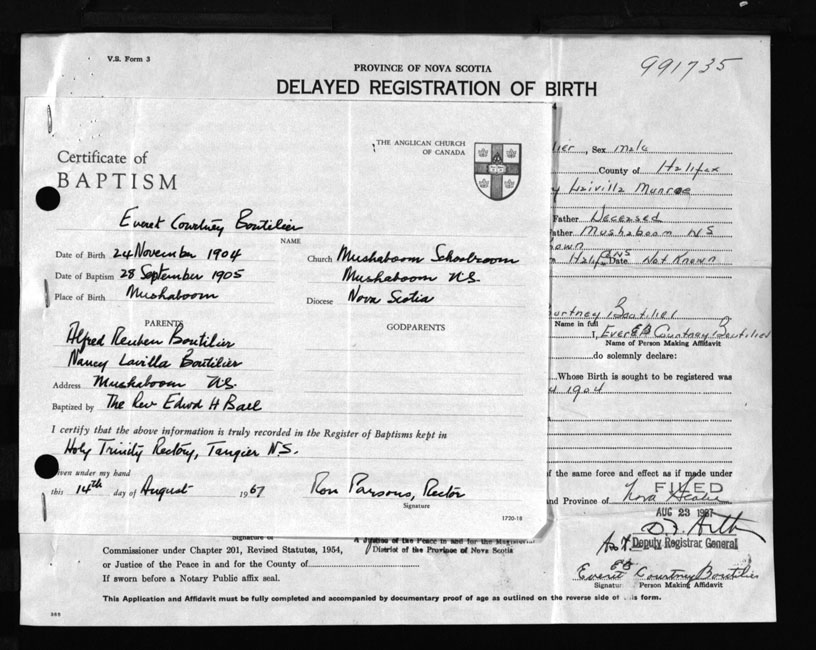 V.S. Form 3
991735
PROVINCE OF NOVA SCOTIA
DELAYED REGISTRATION OF BIRTH
THE ANGLICAN CHURCH
OF CANADA
Certificate of
BAPTISM
Everet Courtney Boutilier
NAME
Date of Birth 24 November 1904
Date of Baptism 28 September 1905
Place of Birth Mushaboom
Church Mushaboom Schoolroom
Mushaboom N.S.
Diocese Nova Scotia
PARENTS
Alfred Reuben Boutilier
Nancy Lavilla Boutilier
GODPARENTS
Address Mushaboom N.S.
Baptized by The Rev Edwd H Ball
I certify that the above information is truly recorded in the Register of Baptisms kept in
Holy Trinity Rectory, Tangier N.S.
Given under my hand
this 14th day of August 1967
Ron Parsons, Rector
Signature
1720-18
lier, Sex male
County of Halifax
y Leivilla Munroe
Father Deceased
ather Mushaboom NS
nown
Halifax NS Date Not Known
urtney Boutilier
Name in full
I, Everet Courtney Boutilier
Name of Person Making Affidavit
do solemnly declare:
Whose Birth is sought to be registered was
4 1904
f the same force and effect as if made under
FILED
and Province of Nova Scotia
AUG 23 1967
Deputy Registrar General
Everet EB Courtney Boutilier
Signature Person Making Affidavit
Signature of
A Justice of the Peace in and for the
District of the Province of Nova Scotia
Commissioner under Chapter 201, Revised Statutes, 1954,
or Justice of the Peace in and for the County of
If sworn before a Notary Public affix seal.
This Application and Affidavit must be fully completed and accompanied by documentary proof of age as outlined on the reverse side of this form.